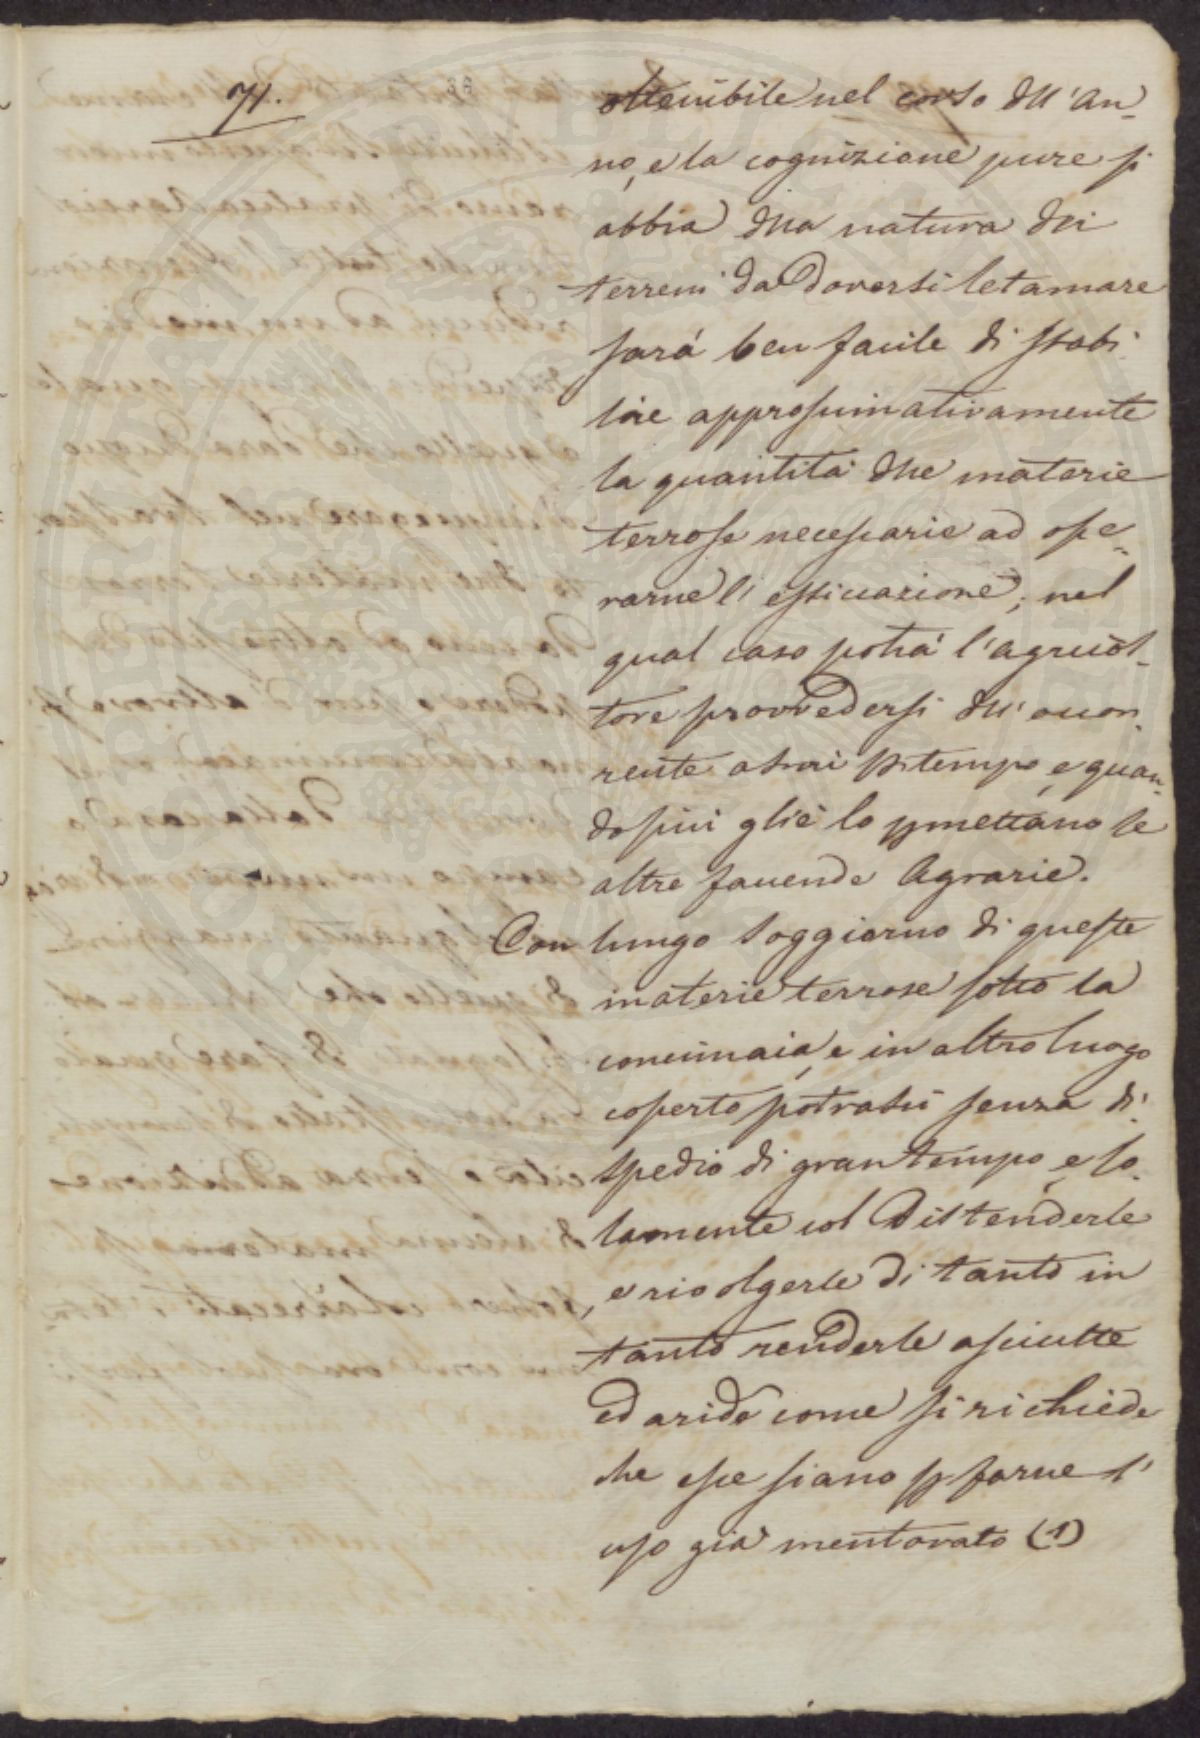 71.
ottenibile nel corso dll' an-
no, e la cognizione pure si
abbia dlla natura dli
terreni da doversi letamare
sará ben facile di stabi
lire approssimativamente
la quantità dlle materie
terrose necessarie ad ope-
rarne l' essiccazione; nel
qual caso potrà l'agricol-
tore provvedersi dll' occor-
rente a tempo, e quan-
do più gliè lo pmettano le
altre faccende Agrarie.
Con lungo soggiorno di queste
materie terrose sotto la
concimaia, e in altro luogo
coperto, potrassi senza di-
spedio di gran tempo, e so-
lamente col distenderle
, e rivolgerle di tanto in
tanto renderle asciutte
ed aride come si richiede
che esse siano p farne l'
uso già mentovato (1)